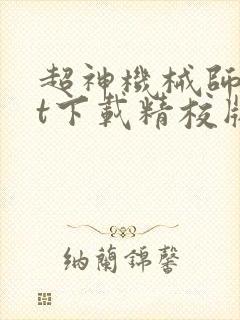 超神機械師
t下載精校版
納蘭錦馨